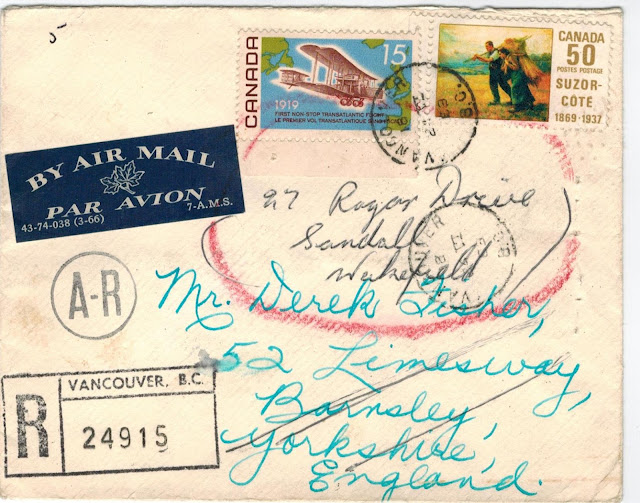 CANADA
15
1919
FIRST NON-STOP TRANSATLANTIC FLIGHT
LE PREMIER VOL TRANSATLANTIQUE SANS
CANADA
50
POSTES POSTAGE
SUZOR-
CÔTÉ
1869-1937
VANCOUVER
B.C.
BY AIR MAIL
PAR AVION
43-74-038 (3-66)
7-A.M.S.
97 Rogar Drive
Sandall
Wakefield
A-R
Mr. Derek Fisher,
52 Limesway,
Barnsley,
Yorkshire,
England.
R
VANCOUVER, B.C.
24915